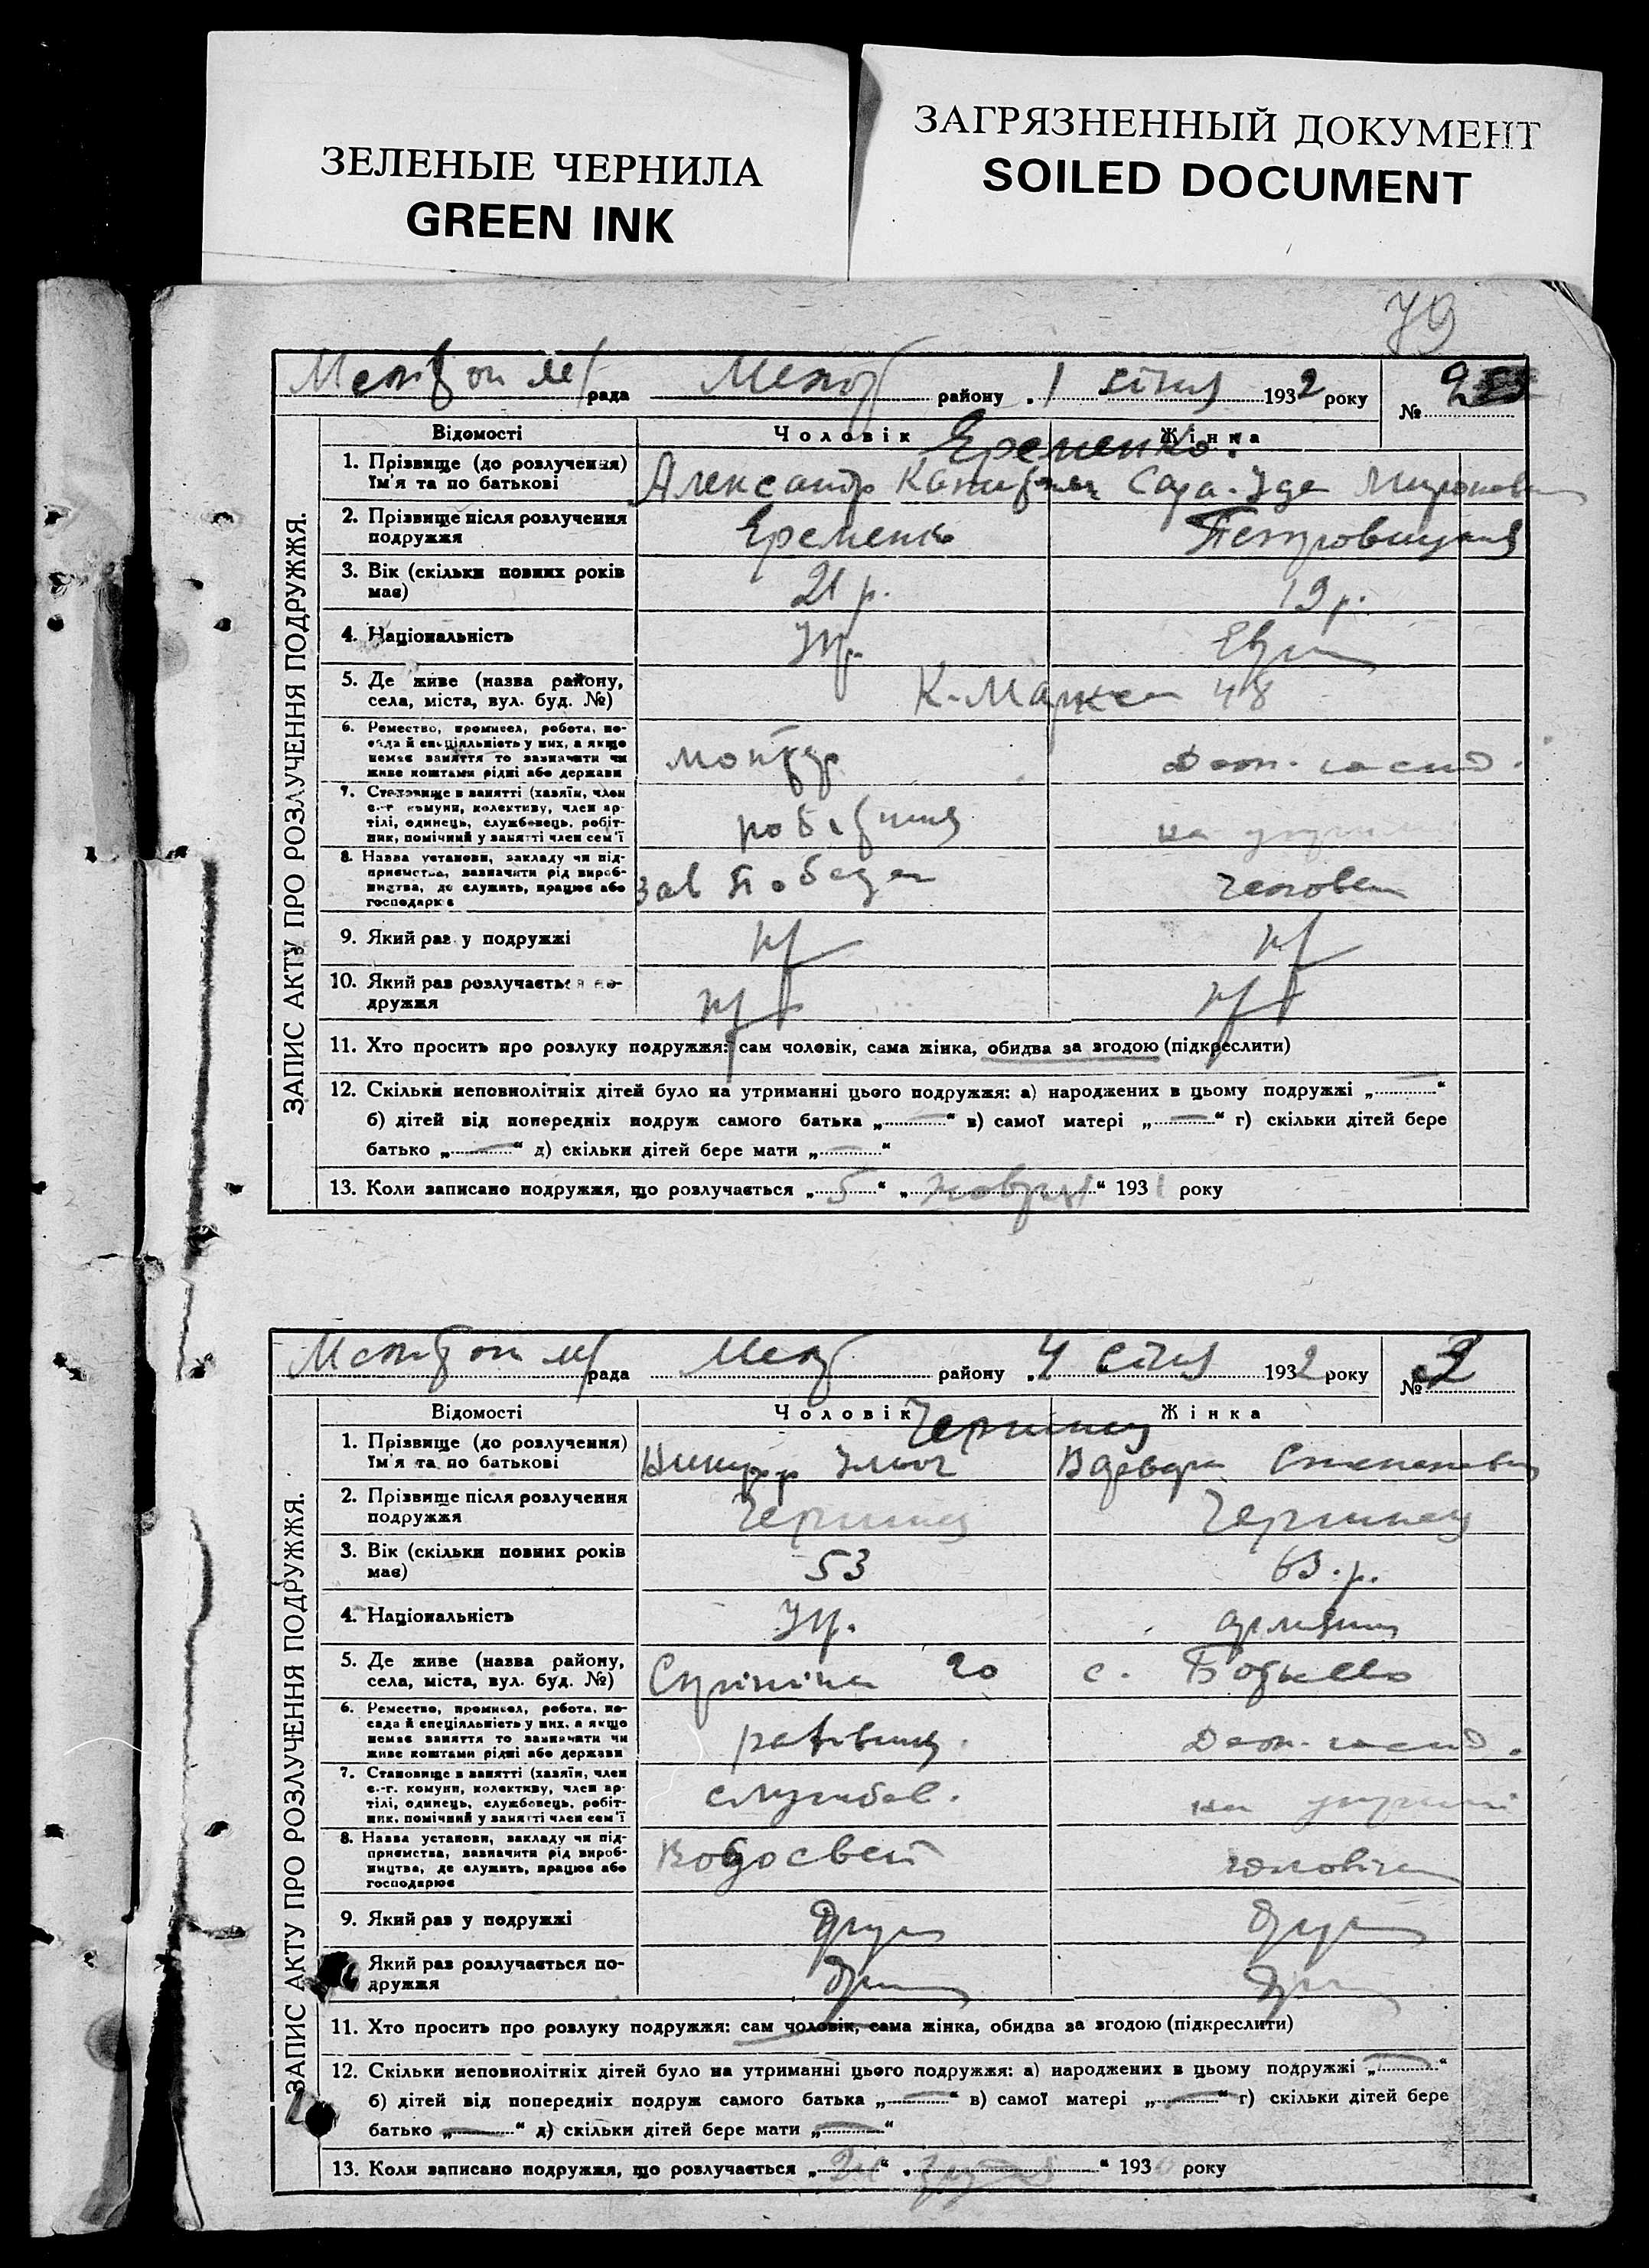 ЗЕЛЕНЫЕ ЧЕРНИЛА
GREEN INK
ЗАГРЯЗНЕННЫЙ ДОКУМЕНТ
SOILED DOCUMENT
79
рада району 1 січня 1932 року № 2
ЗАПИС АКТУ ПРО РОЗЛУЧЕННЯ ПОДРУЖЖЯ.
Відомості Чоловік Жінка
Еременко
1. Прізвище (до розлучення) Александр Сара-Ида
Ім'я та по батькові
2. Прізвище після розлучення Еременко
подружжя
3. Вік (скільки повних років 21 р. 19 р.
має)
4. Національність Укр.
5. Де живе (назва району, К-Маркса 48
села, міста, вул. буд. №)
6. Ремество, промисел, робота, по-
сада й спеціяльність у них, а якщо монтер
немає заняття то зазначити чи Дом. госпо.
живе коштами рідні або держави
7. Становище в занятті (хазяїн, член
с.-г. комуни, колективу, член ар-
тілі, одинець, службовець, робіт- робітник на
ник, помічний у занятті член сем'ї
8. Назва установи, закладу чи під-
приємства, зазначити рід вироб- зав Победа
ництва, де служить, працює або
господарює
9. Який раз у подружжі
10. Який раз розлучається по-
дружжя
11. Хто просить про розлуку подружжя: сам чоловік, сама жінка, обидва за згодою (підкреслити)
12. Скільки неповнолітніх дітей було на утриманні цього подружжя: а) народжених в цьому подружжі „—“
б) дітей від попередніх подруж самого батька „—“ в) самої матері „—“ г) скільки дітей бере
батько „—“ д) скільки дітей бере мати „—“
13. Коли записано подружжя, що розлучається „5“ „“ 1931 року
рада району „4 січня 1932 року № 3
ЗАПИС АКТУ ПРО РОЗЛУЧЕННЯ ПОДРУЖЖЯ.
Відомості Чоловік Жінка
Чернинец
1. Прізвище (до розлучення) Варвара Степановна
Ім'я та по батькові
2. Прізвище після розлучення Чернинец Чернинец
подружжя
3. Вік (скільки повних років 53 63 р.
має)
4. Національність Укр.
5. Де живе (назва району, 20 с.
села, міста, вул. буд. №)
6. Ремество, промисел, робота, по-
сада й спеціяльність у них, а якщо
немає заняття то зазначити чи Дом. госпо.
живе коштами рідні або держави
7. Становище в занятті (хазяїн, член
с.-г. комуни, колективу, член ар- службов.
тілі, одинець, службовець, робіт- на
ник, помічний у занятті член сем'ї
8. Назва установи, закладу чи під-
приємства, зазначити рід вироб- Водосвет
ництва, де служить, працює або чоловіка
господарює
9. Який раз у подружжі
Який раз розлучається по-
дружжя
11. Хто просить про розлуку подружжя: сам чоловік, сама жінка, обидва за згодою (підкреслити)
12. Скільки неповнолітніх дітей було на утриманні цього подружжя: а) народжених в цьому подружжі „—“
б) дітей від попередніх подруж самого батька „—“ в) самої матері „—“ г) скільки дітей бере
батько „—“ д) скільки дітей бере мати „—“
13. Коли записано подружжя, що розлучається „“ „“ 193 року